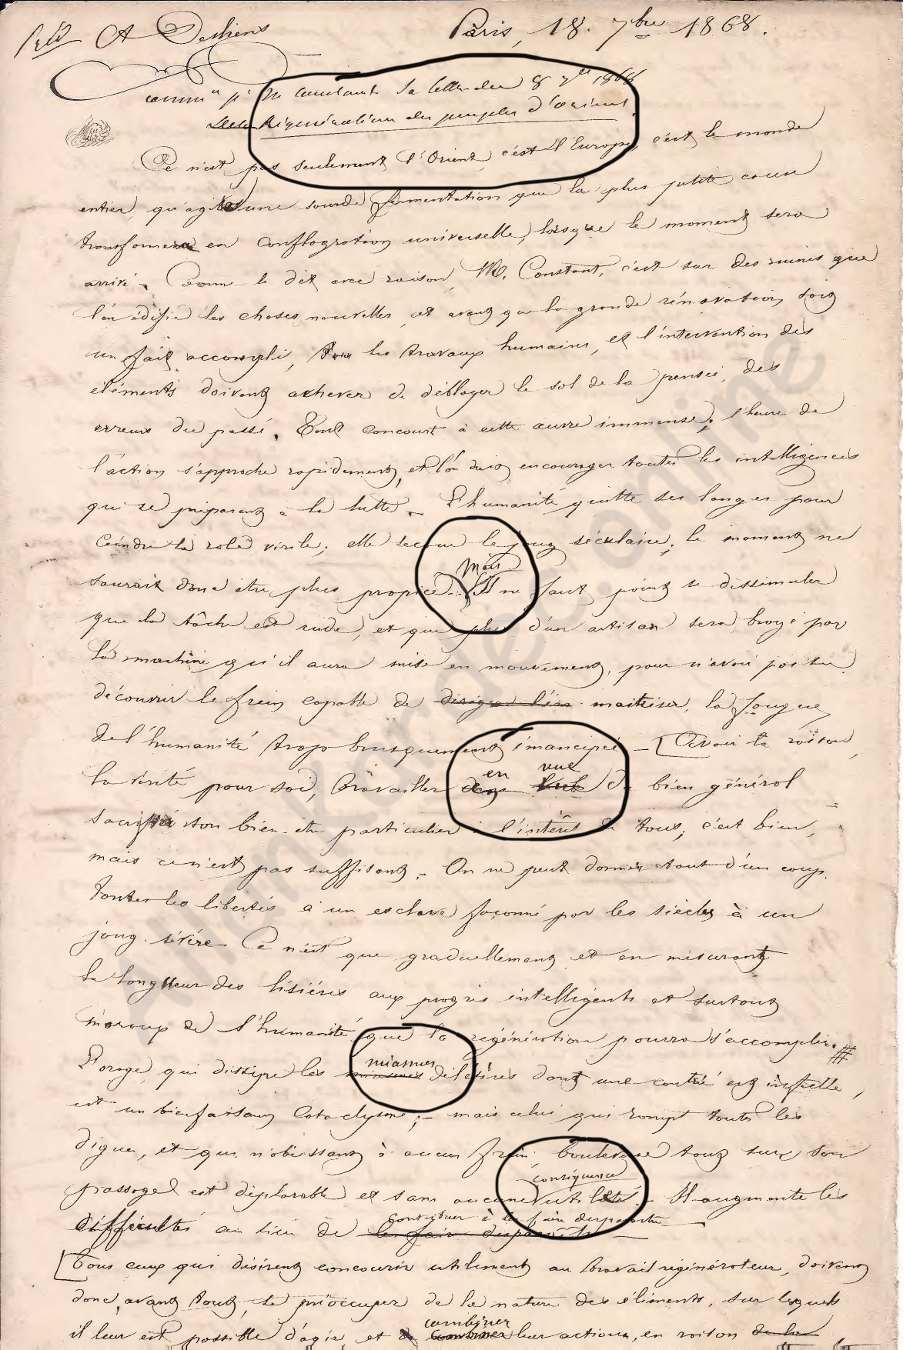 Petit A Deshiens Paris, 18. 7bre 1868.
comm on pr M Constant sa lettre du 8 7bre 1868
Régénération des peuples d'Orient
Ce n'est pas seulement l'Orient, c'est l'Europe, c'est le monde
entier qu'agite une sourde fermentation que la plus petite cause
transformera en conflagration universelle, lorsque le moment sera
arrivé. Comme le dit avec raison, M. Constant, c'est sur des ruines que
l'on édifie les choses nouvelles, et avant que la grande rénovation soit
un fait accompli, les travaux humains, et l'intervention des
éléments doivent achever de déblayer le sol de la pensée, des
erreurs du passé. Tout concourt à cette œuvre immense; l'heure de
l'action s'approche rapidement, et l'on doit encourager toutes les intelligences
qui se préparent à la lutte. L'humanité quitte ses langes pour
ceindre la robe virile; elle secoue le joug séculaire; le moment ne
mais
saurait donc être plus propice. Il ne faut point se dissimuler
que la tâche est rude, et que plus d'un artisan sera broyé par
la machine qu'il aura mise en mouvement, pour n'avoir pas su
découvrir le frein capable de maitriser, la fougue
de l'humanité trop brusquement émancipée – [Avoir la raison,
en vue
la vérité pour soi, travailler du bien général
sacrifier son bien-être particulier à l'intérêt de tous, c'est bien,
mais ce n'est pas suffisant. On ne peut donner tout d'un coup
toutes les libertés à un esclave façonné par les siècles à un
joug sévère. Ce n'est que graduellement et en mesurant
la longueur des lisières aux progrès intelligents et surtout
moraux de l'humanité que la régénération pourra s'accomplir. #
miasmes
L'orage qui dissipe les miasmes délétères dont une contrée est infectée,
est un bienfaisant cataclysme; – mais celui qui rompt toutes les
digues, et qui n'obéissant à aucun frein, bouleverse tout sur son
conséquence
passage, est déplorable et sans aucune utilité. Il augmente les
contribuer à les faire disparaître
difficultés au lieu de les faire disparaître
[Tous ceux qui désirent concourir utilement au travail régénérateur, doivent
donc, avant tout, se préoccuper de la nature des éléments, sur lesquels
combiner
il leur est possible d'agir, et de combiner leur actions, en raison de la